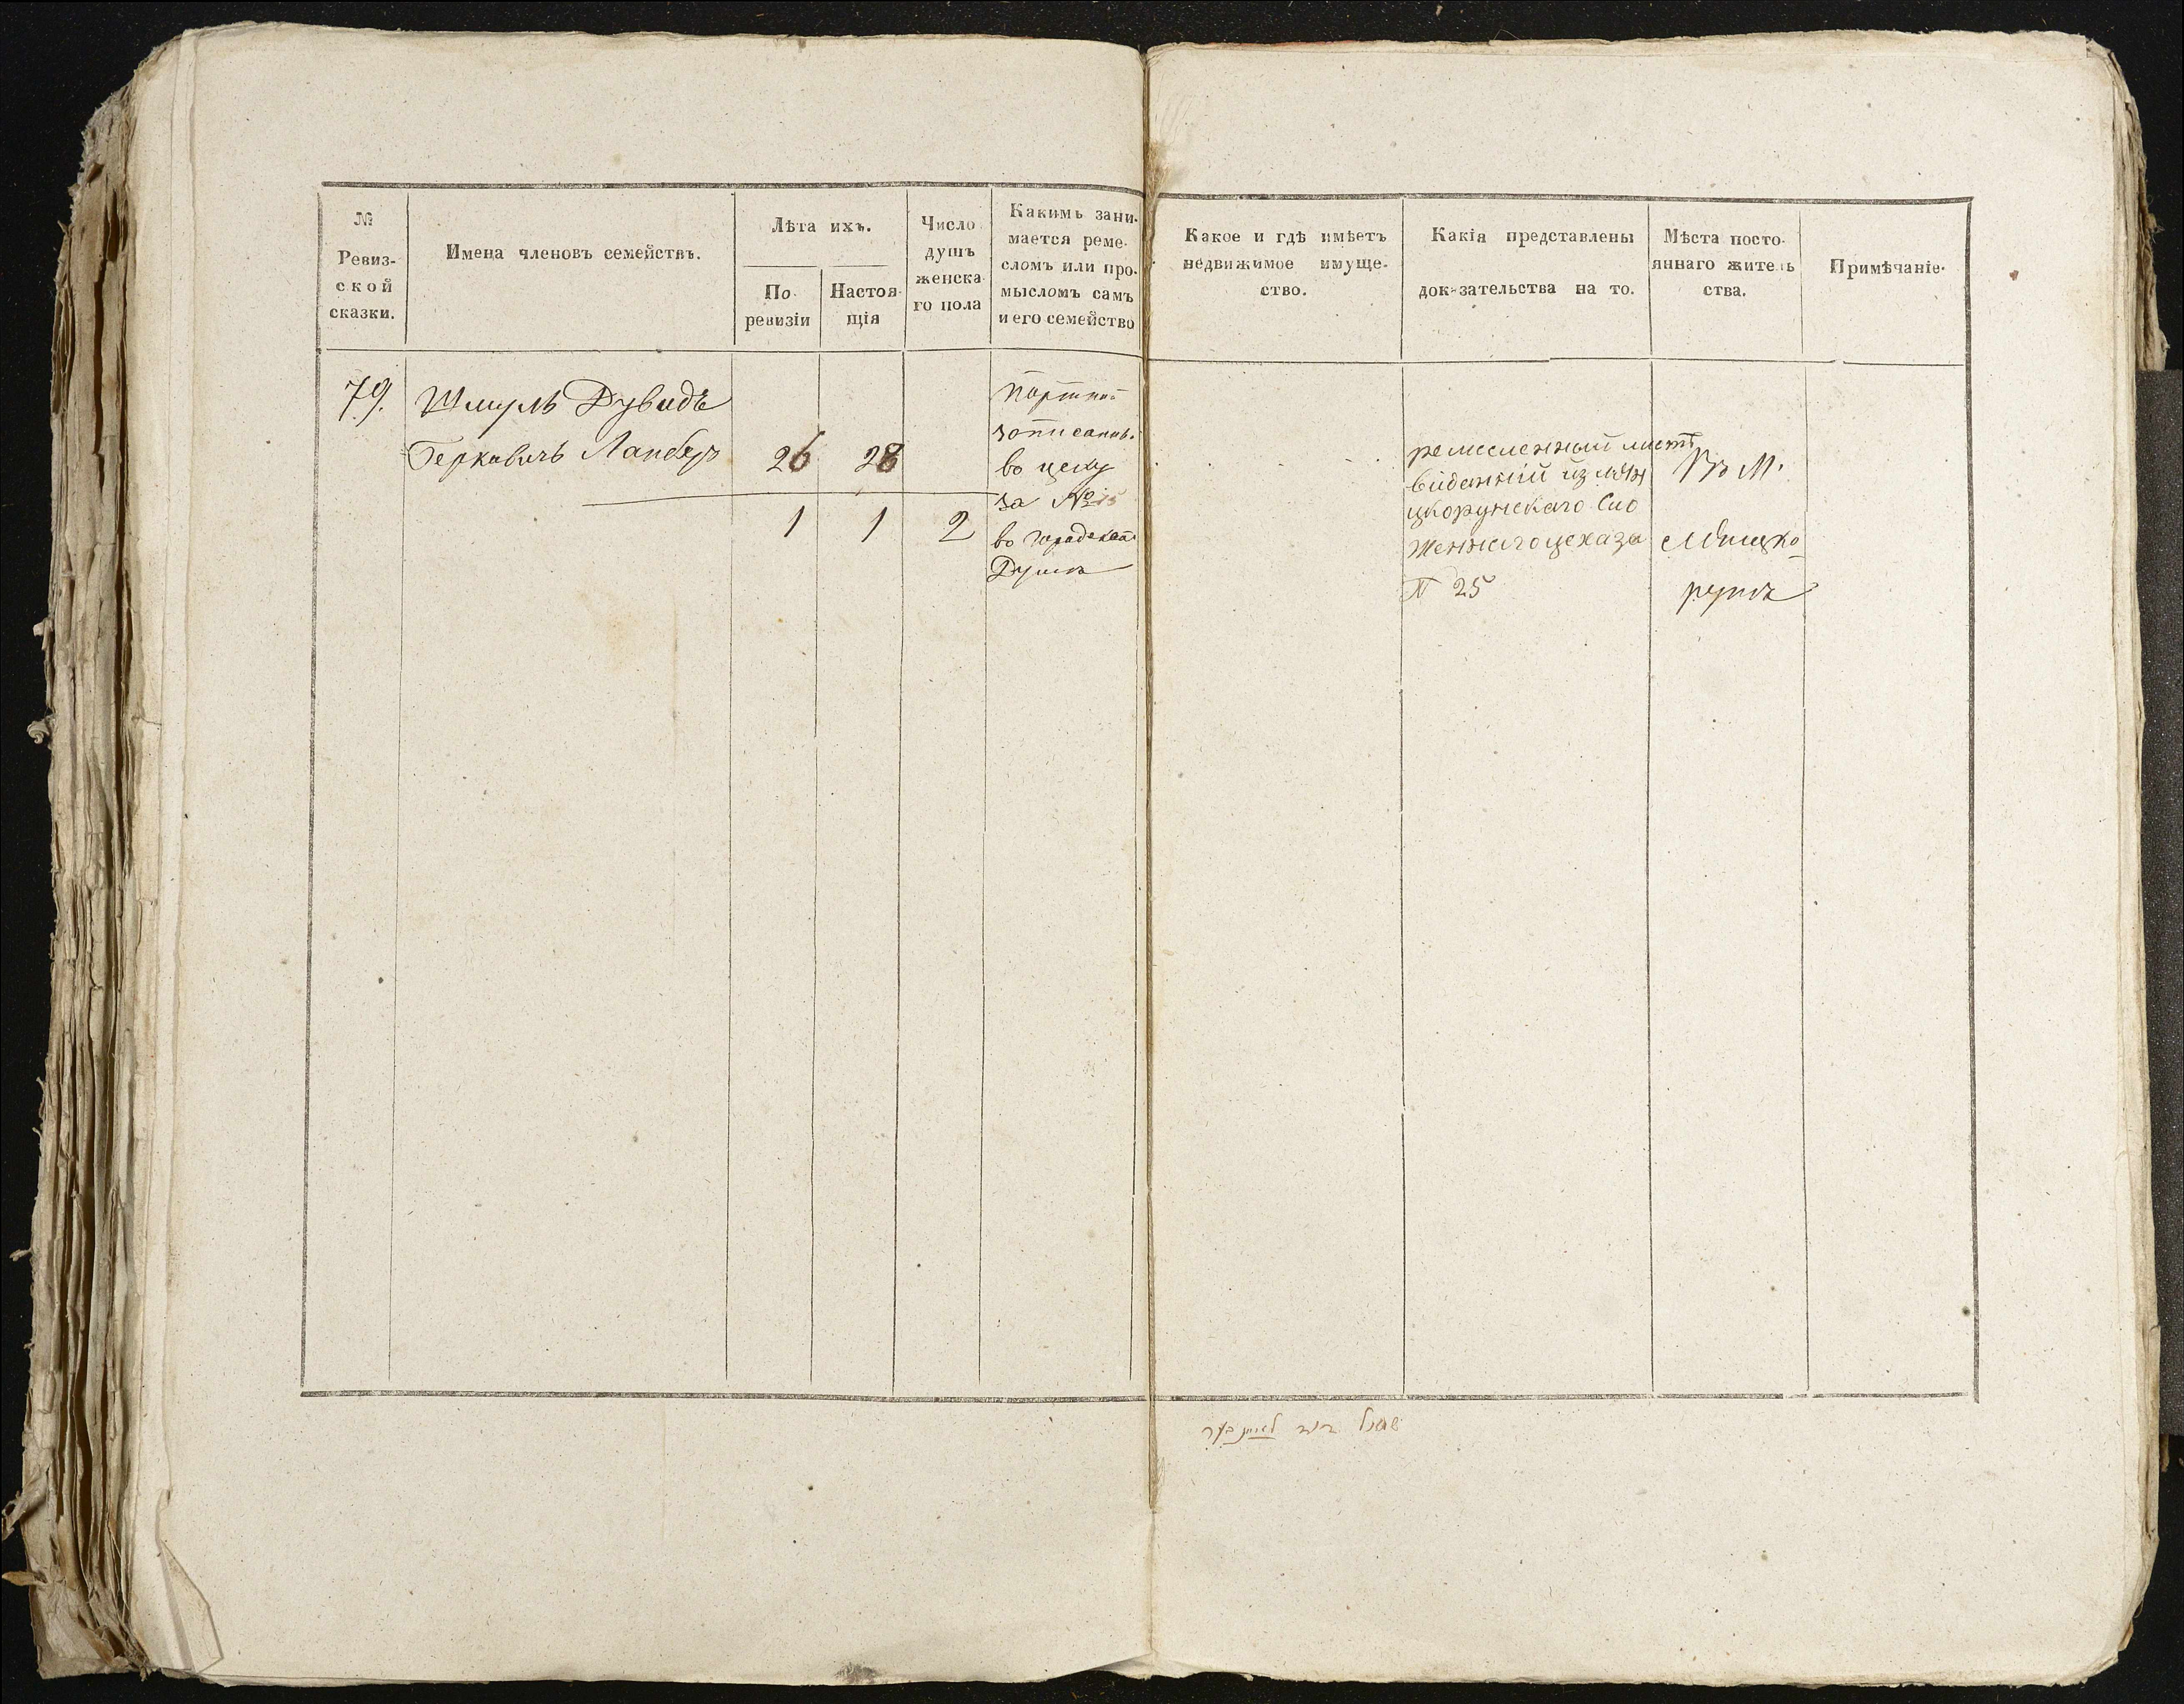 №
Ревиз-
ской
сказки.
Имена членовъ семействъ.
Лѣта ихъ.
По
ревизіи
Настоя-
щія
Число
душъ
женска-
го пола
Какимъ зани-
мается реме-
сломъ или про-
мысломъ самъ
и его семейство
Какое и гдѣ имѣетъ
недвижимое имуще-
ство.
Какія представлены
доказательства на то.
Мѣста посто-
яннаго житель
ства.
Примѣчаніе.
79.
Шмуль Дувидъ
Герковичъ
26 28
1 1 2
портной
записанъ
во цеху
за №15
во городской
Думѣ
ремесленный листъ
виданній из мѣн
цкорунскаго Сло
женнаго цеха за
№ 25
Въ М.
Мѣнцко-
рунѣ
שמול דוד